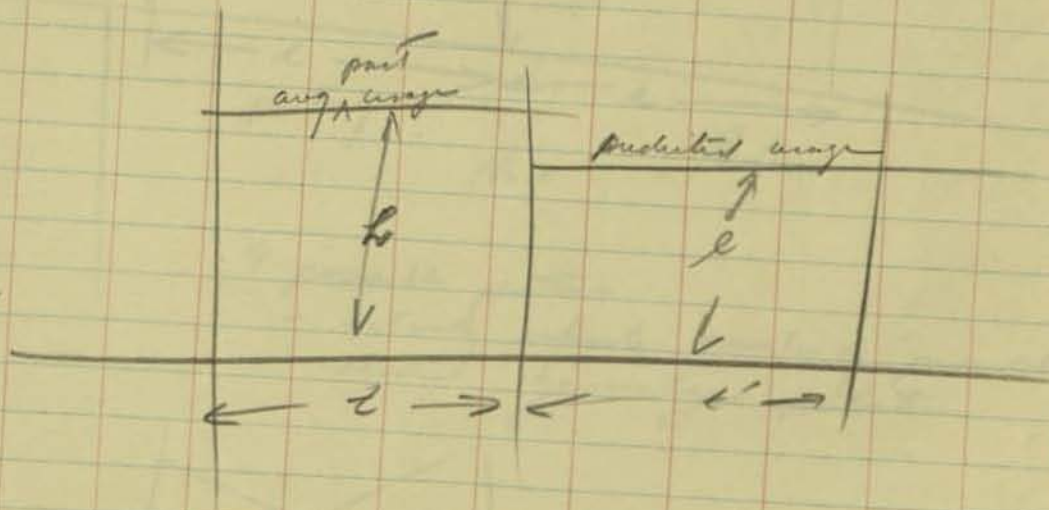 past
avg ^ usage
predicted usage
h
e
t
t'